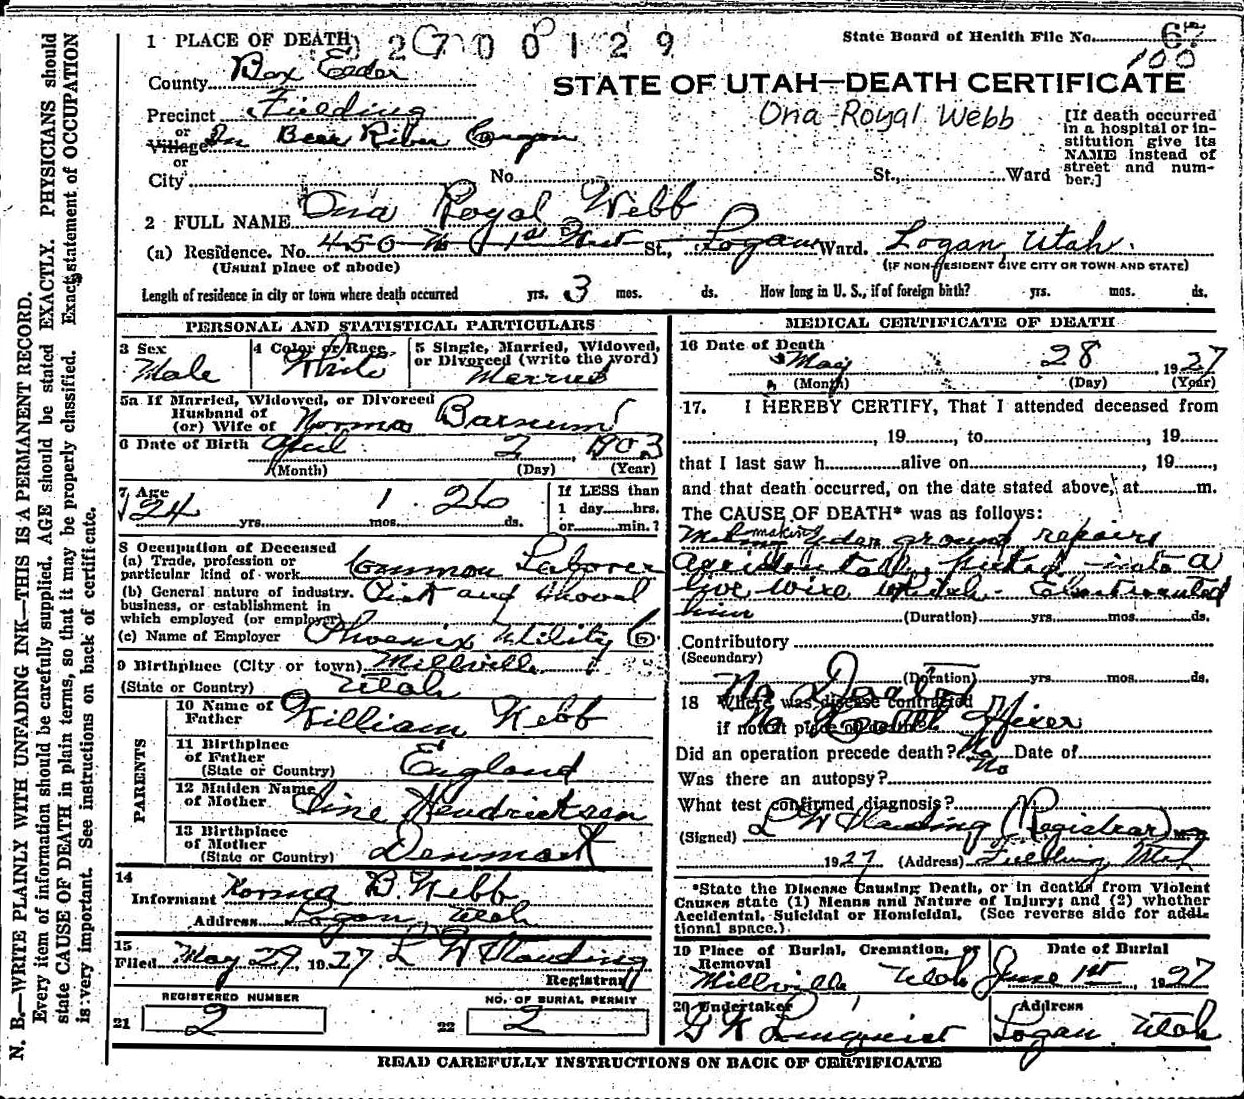 1 PLACE OF DEATH 02700129
State Board of Health File No. 67
100
County Box Elder
STATE OF UTAH—DEATH CERTIFICATE
Precinct Fielding
Ona Royal Webb
or
Village In Bear River Canyon
or
City No. St., Ward
[If death occurred
in a hospital or in-
stitution give its
NAME instead of
street and num-
ber.]
2 FULL NAME Ona Royal Webb
(a) Residence. No. 450 N 1st West St., Logan Ward. Logan, Utah.
(Usual place of abode) (IF NON-RESIDENT GIVE CITY OR TOWN AND STATE)
Length of residence in city or town where death occurred yrs. 3 mos. ds. How long in U. S., if of foreign birth? yrs. mos. ds.
PERSONAL AND STATISTICAL PARTICULARS
3 Sex
Male
4 Color or Race
White
5 Single, Married, Widowed,
or Divorced (write the word)
Married
5a If Married, Widowed, or Divorced
Husband of
(or) Wife of Norma Barnum
6 Date of Birth April 2, 1903
(Month) (Day) (Year)
7 Age
24 yrs. 1 mos. 26 ds.
If LESS than
1 day hrs.
or min.?
8 Occupation of Deceased
(a) Trade, profession or
particular kind of work Common Laborer
(b) General nature of industry,
business, or establishment in
which employed (or employer) Pick and Shovel
(c) Name of Employer Phoenix Utility Co
9 Birthplace (City or town) Millville
(State or Country) Utah
PARENTS
10 Name of
Father William Webb
11 Birthplace
of Father
(State or Country) England
12 Maiden Name
of Mother Sine Hendricksen
13 Birthplace
of Mother
(State or Country) Denmark
14
Informant Norma B. Webb
Address Logan, Utah
15
Filed May 29, 1927 L W Harding
Registrar
REGISTERED NUMBER
21 2
NO. OF BURIAL PERMIT
22 2
MEDICAL CERTIFICATE OF DEATH
16 Date of Death
May 28, 1927
(Month) (Day) (Year)
17. I HEREBY CERTIFY, That I attended deceased from
, 19 , to , 19
that I last saw h alive on , 19 ,
and that death occurred, on the date stated above, at m.
The CAUSE OF DEATH* was as follows:
making under ground repairs
accidentally picked into a
live wire which Electrocuted
him
(Duration) yrs. mos. ds.
Contributory
(Secondary)
(Duration) yrs. mos. ds.
No Doctor
18 Where was disease contracted
if not at place of death?
No Health Officer
Did an operation precede death? No Date of
Was there an autopsy? No
What test confirmed diagnosis?
(Signed) L W Harding (Registrar) M. D.
1927 (Address) Fielding, Utah
*State the Disease Causing Death, or in deaths from Violent
Causes state (1) Means and Nature of Injury; and (2) whether
Accidental, Suicidal or Homicidal. (See reverse side for addi-
tional space.)
19 Place of Burial, Cremation, or
Removal
Millville Utah
Date of Burial
June 1st, 1927
20 Undertaker
G W Linquist
Address
Logan Utah
READ CAREFULLY INSTRUCTIONS ON BACK OF CERTIFICATE
N. B.—WRITE PLAINLY WITH UNFADING INK—THIS IS A PERMANENT RECORD.
Every item of information should be carefully supplied. AGE should be stated EXACTLY. PHYSICIANS should
state CAUSE OF DEATH in plain terms, so that it may be properly classified. Exact statement of OCCUPATION
is very important. See instructions on back of certificate.